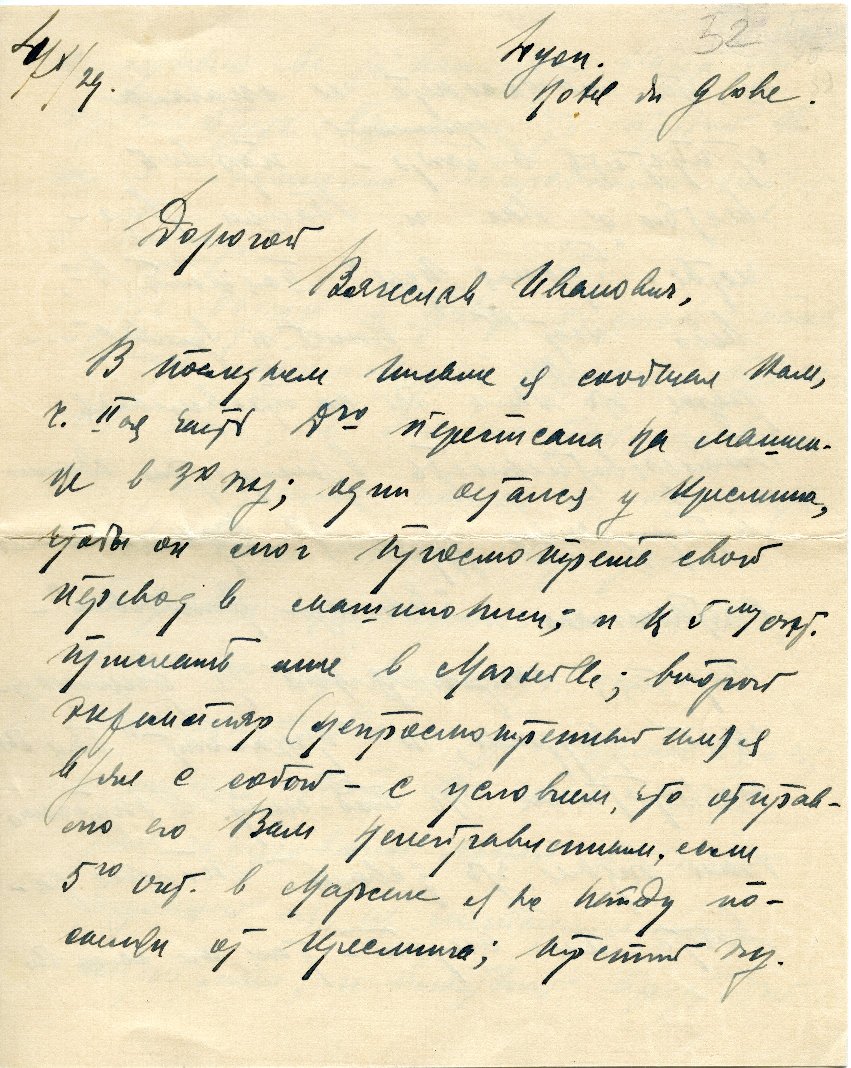 32
4/X/29.
Lyon.
Hotel du Globe.
Дорогой
Вячеслав Иванович,
В последнем письме я сообщал Вам,
ч. IIая часть Дго переписана на машин-
ке в 3х экз; один остался у Креслинга,
чтобы он мог просмотреть свой
перевод в машинописи; и к 5му окт.
прислать мне в Marseille; второй
экземпляр (непросмотренный им) я
взял с собой – с условием, что отправ-
лю его Вам неисправленным, если
5го окт. в Марселе я не найду по-
сылки от Креслинга; третий экз.